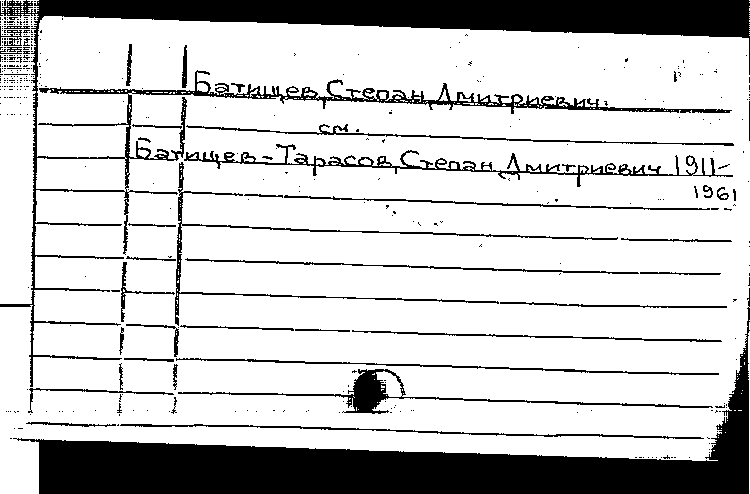 Батищев, Степан Дмитриевич.
см.
Батищев-Тарасов, Степан Дмитриевич 1911-
1961